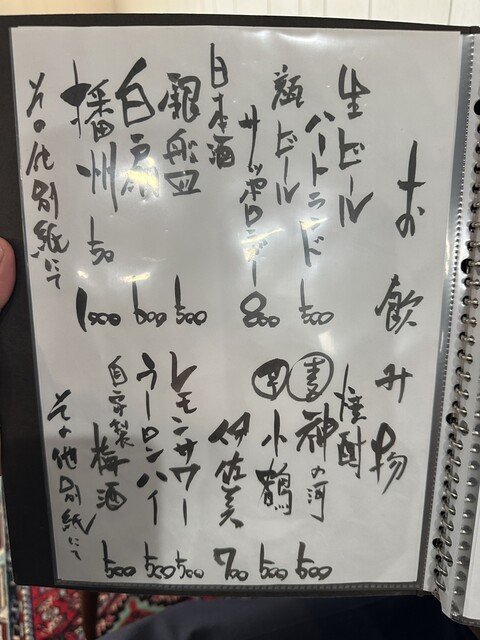 お飲み物
生ビール
ハートランド 500
瓶ビール
サッポロラガー 800
日本酒
銀盤 500
白扇 600
播州 50 1000
その他別紙にて
焼酎
麦 神の河 600
芋 小鶴 500
伊佐美 700
レモンサワー 500
ウーロンハイ 500
自家製梅酒 500
その他別紙にて